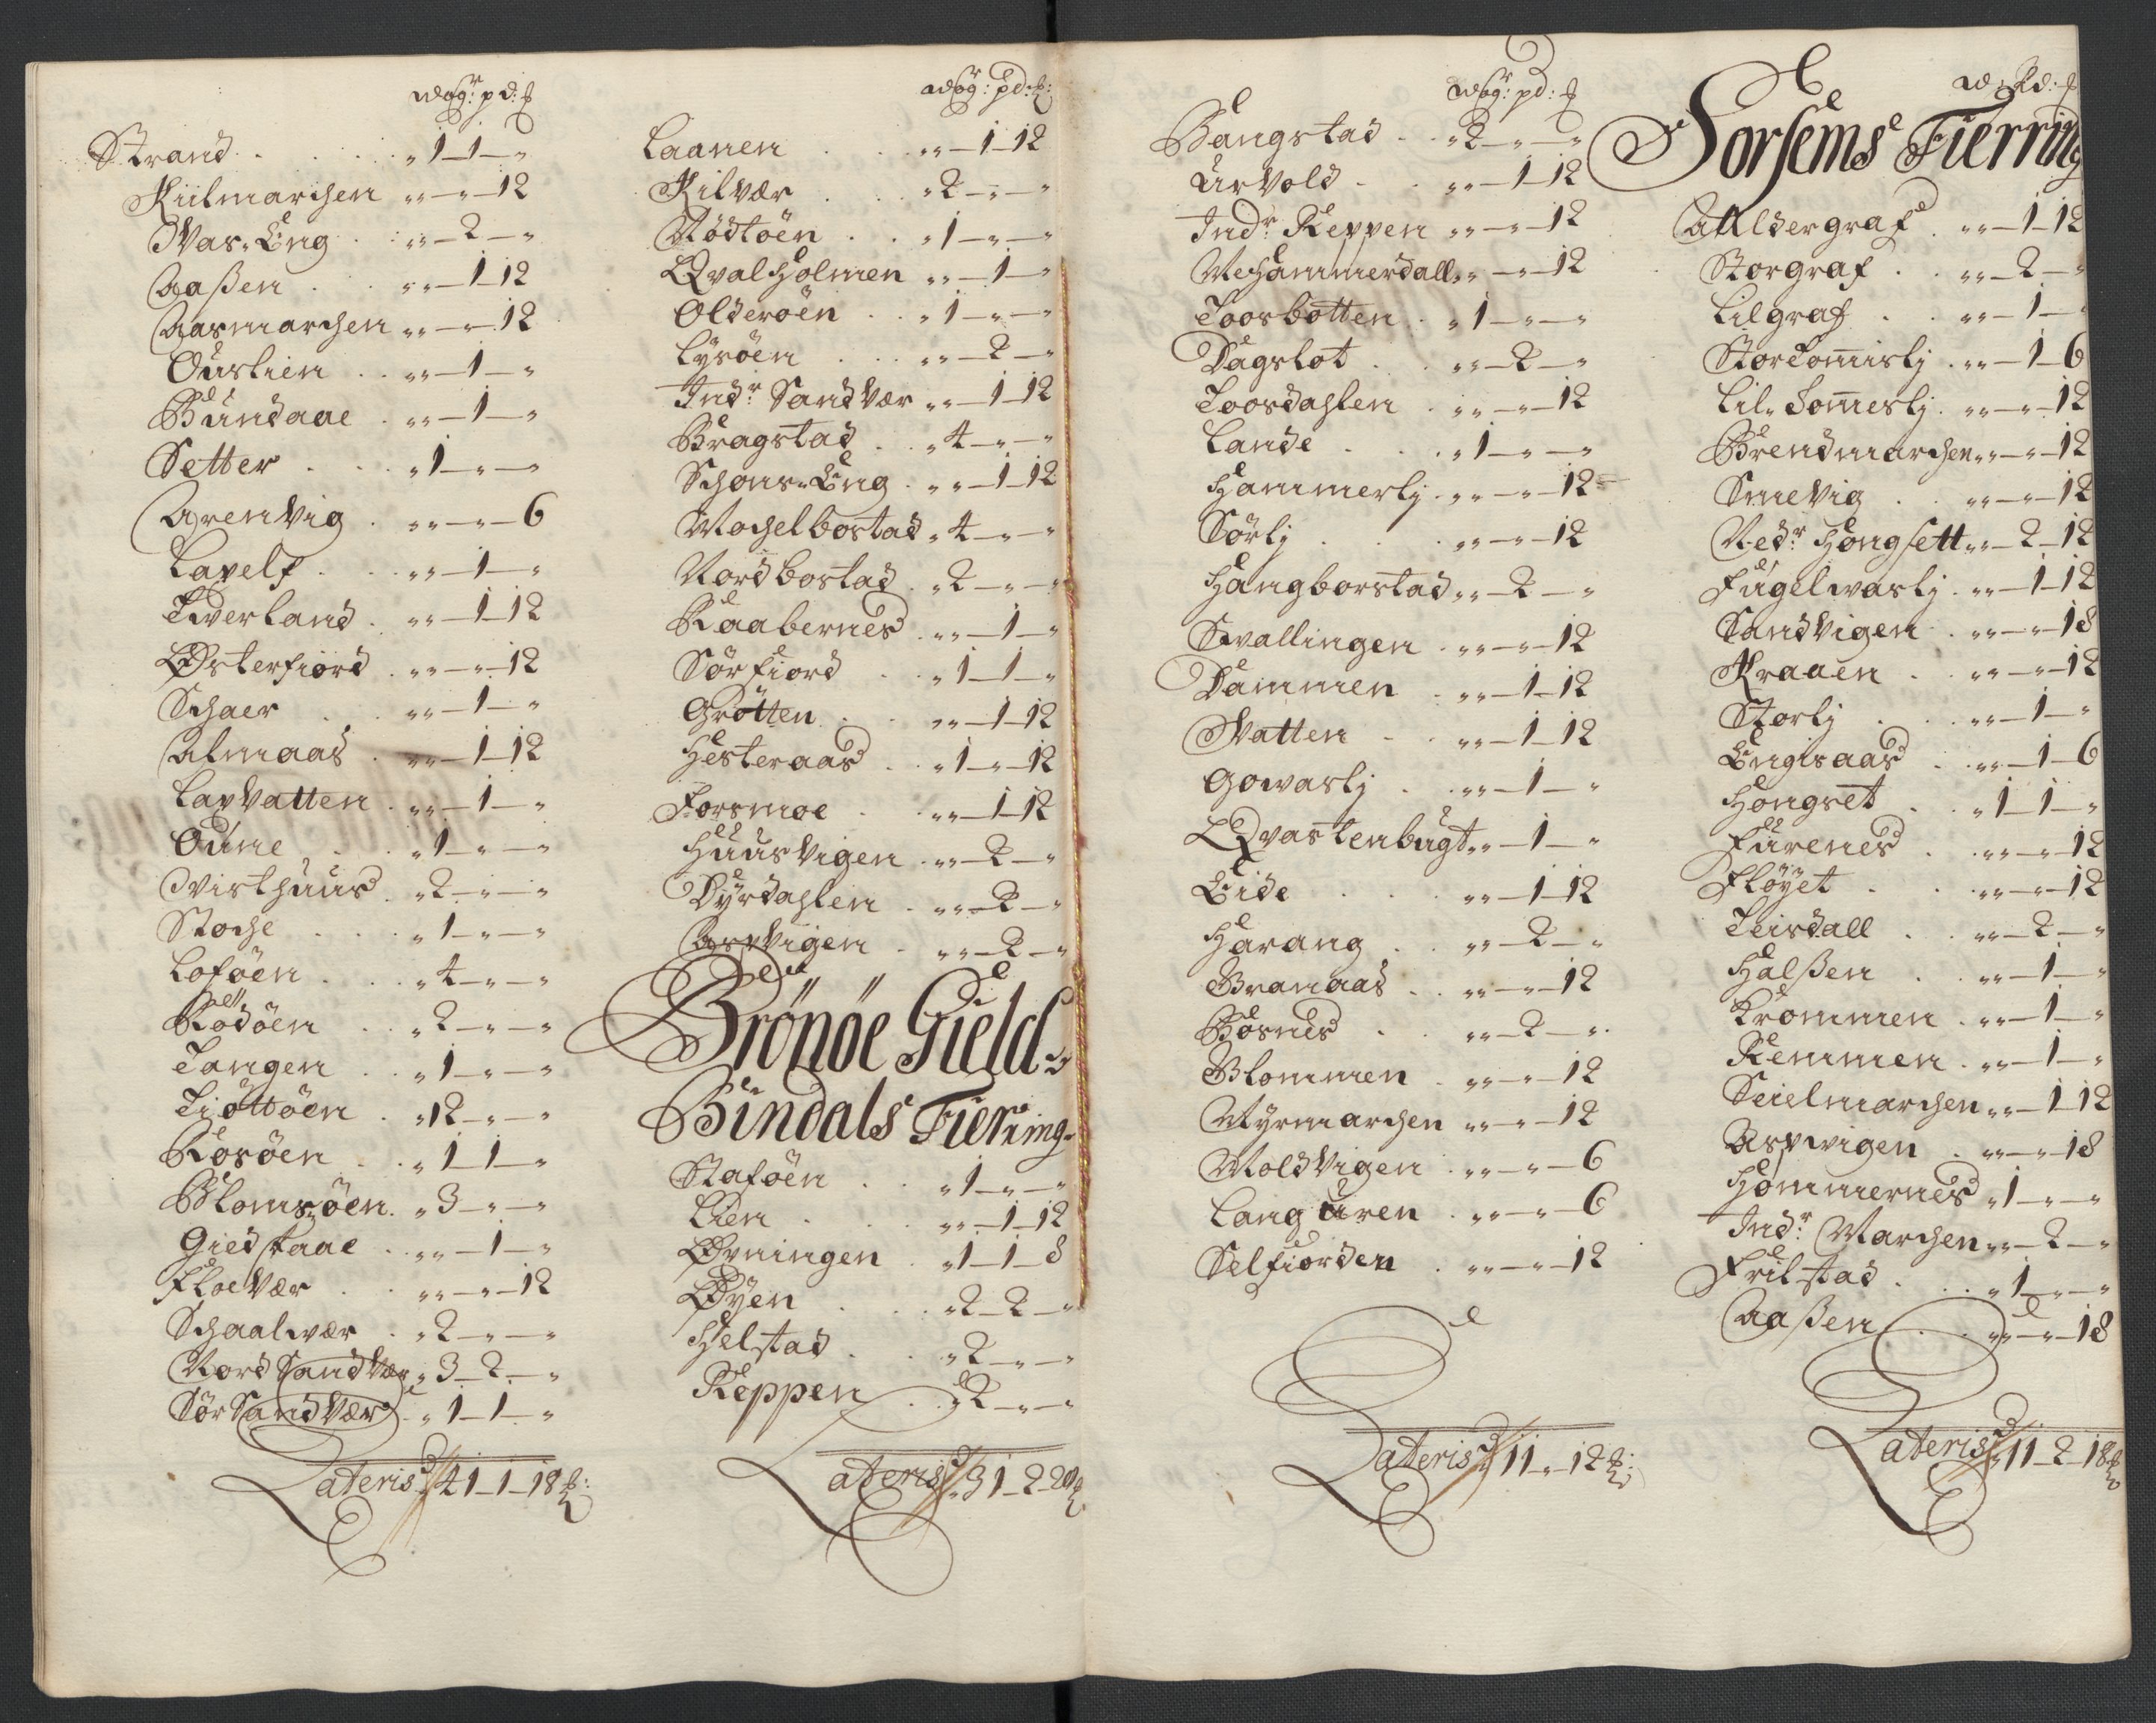 wog: pd: ℔
Strand . . . „ 1 — 1 — „
Kiilmarchen „ „ — „ — 12
Was. Eng . „ „ — 2 — „
Aaßen . „ „ — 1 — 12
Aasmarchen „ „ — „ — 12
Ouslien . „ „ — 1 — „
Bundaae . „ „ — 1 — „
Setter . . „ 1 — „ — „
Arenvig . „ „ — „ — 6
Lapelf . „ „ — 1 — „
Tverland . „ „ — 1 — 12
Østerfiord . „ „ — „ — 12
Schaer . „ „ — 1 — „
Almaas . „ „ — 1 — 12
Lapvatten . „ „ — 1 — „
Oune . . „ 1 — „ — „
Visthuus . „ 2 — „ — „
Stoche . . „ 1 — „ — „
Loföen . . „ 4 — „ — „
Rödöen . . „ 2 — „ — „
Tangen . . „ 1 — „ — „
Tiöttöen . „ 12 — „ — „
Rosöen . . „ 1 — 1 — „
Blomsöen . „ 3 — „ — „
Giedstaae . „ „ — 1 — „
Floevær . „ „ — „ — 12
Schaalvær . „ 2 — „ — „
Nord Sandvær „ 3 — 2 — „
Sör Sandvær . „ 1 — 1 — „
Lateris 41 — 1 — 18 ℔:
wog: pd: ℔:
Laanen . . „ „ — 1 — 12
Kilvær . „ 2 — „ — „
Rödtöen . . „ 1 — „ — „
Qvalholmen „ „ — 1 — „
Olderöen . . „ 1 — „ — „
Lyröen . . „ „ — 2 — „
Indr Sandvær „ „ — 1 — 12
Bragstad . . „ 4 — „ — „
Schons. Eng . „ „ — 1 — 12
Mochelbostad „ 4 — „ — „
Nordbostad . „ 2 — „ — „
Raabernes . „ „ — 1 — „
Sörfiord . . „ 1 — 1 — „
Grötten . „ „ — 1 — 12
Hesteraas . „ 1 — „ — 12
Forsmoe . „ „ — 1 — 12
Huusvigen . „ „ — 2 — „
Dyrdahlen . „ „ — 2 — „
Aspvigen . „ „ — 2 — „
Brönöe Gield.
Bindals Fierring.
Staföen . . „ 1 — „ — „
Lien . . „ „ — 1 — 12
Øvningen . „ 1 — 1 — 8
Øyen . . „ 2 — 2 — „
Helstad . . „ 2 — „ — „
Reppen . . „ 2 — „ — „
Lateris 31 — 2 — 20 ℔
wog: pd: ℔
Bangstad . . „ 2 — „ — „
Urvold . . „ „ — 1 — 12
Indr Reppen „ „ — „ — 12
Nehammerdall „ „ — „ — 12
Toosbotten . „ 1 — „ — „
Dagslot . . „ „ — 2 — „
Toosdahlen . „ „ — „ — 12
Lande . . „ 1 — „ — „
Hammerlj . „ „ — „ — 12
Sörlj . . „ „ — „ — 12
Hangborstad „ „ — 2 — „
Svallingen . „ „ — „ — 12
Dammen . „ „ — 1 — 12
Vatten . „ „ — 1 — 12
Gowaslj . „ „ — 1 — „
Qvastenbugt „ „ — 1 — „
Eide . . . „ „ — 1 — 12
Harang . . „ „ — 2 — „
Granaas . . „ „ — „ — 12
Bosnes . . „ „ — 2 — „
Blommen . „ „ — „ — 12
Myrmarchen „ „ — „ — 12
Moldvigen . „ „ — „ — 6
Languren . „ „ — „ — 6
Selfiorden . „ „ — „ — 12
Lateris 11 — „ — 12 ℔:
w: pd: ℔
Sorsems Fierring
Alldergraf . „ „ — 1 — 12
Storgraf . . „ „ — 2 — „
Lilgraf . . „ „ — 1 — „
Stortomislj . „ „ — 1 — 6
Lil. Tomeslj . „ „ — „ — 12
Brendmarchen „ „ — „ — 12
Smevig . . „ „ — „ — 12
Nedr Hongsett „ „ — 2 — 12
Fugelwaslj . „ „ — 1 — 12
Sandvigen . „ „ — „ — 18
Kraaen . . „ „ — „ — 12
Storlj . . „ „ — 1 — „
Engisaas . „ „ — 1 — 6
Hongset . . „ 1 — 1 — „
Furenes . . „ „ — „ — 12
Flöyet . . „ „ — „ — 12
Teisdall . . „ „ — 2 — „
Halßen . . „ „ — 1 — „
Krommen . „ „ — 1 — „
Remmen . „ „ — 1 — „
Seielmarchen „ „ — 1 — 12
Aspwigen . „ „ — „ — 18
Hommernes „ 1 — „ — „
Indr Marchen „ „ — 2 — „
Frilstad . . . „ 1 — „ — „
Aaßen . . „ „ — „ — 18
Lateris 11 — 2 — 18 ℔